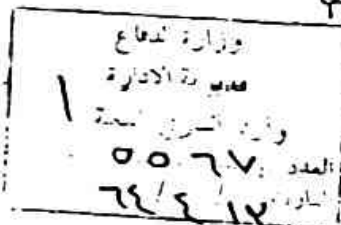 ٢
وزارة الدفاع
مديرية الادارة
١
العدد ٥٥٦٧
التاريخ ٦٤/٤/١٣